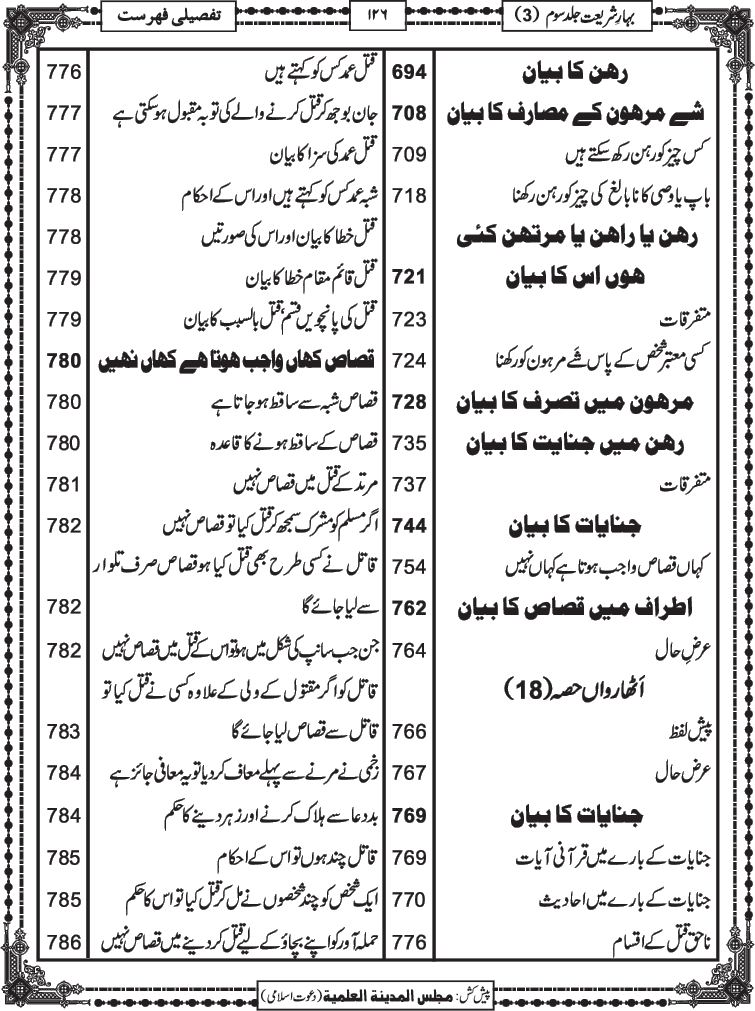 بہارِ شریعت جلد سوم (3)
۱۲۶
تفصیلی فہرست
رهن کا بیان 694
شے مرھون کے مصارف کا بیان 708
کس چیز کو رہن رکھ سکتے ہیں 709
باپ یا وصی کا نابالغ کی چیز کو رہن رکھنا 718
رھن یا راھن یا مرتھن کئی
ھوں اس کا بیان 721
متفرقات 723
کسی معتبر شخص کے پاس شَے مرہون کو رکھنا 724
مرھون میں تصرف کا بیان 728
رھن میں جنایت کا بیان 735
متفرقات 737
جنایات کا بیان 744
کہاں قصاص واجب ہوتا ہے کہاں نہیں 754
اطراف میں قصاص کا بیان 762
عرضِ حال 764
اَٹھارواں حصہ (18)
پیش لفظ 766
عرض حال 767
جنایات کا بیان 769
جنایات کے بارے میں قرآنی آیات 769
جنایات کے بارے میں احادیث 770
ناحق قتل کے اقسام 776
قتل عمد کس کو کہتے ہیں 776
جان بوجھ کر قتل کرنے والے کی توبہ مقبول ہوسکتی ہے 777
قتل عمد کی سزا کا بیان 777
شبہ عمد کس کو کہتے ہیں اور اس کے احکام 778
قتل خطا کا بیان اور اس کی صورتیں 778
قتل قائم مقام خطا کا بیان 779
قتل کی پانچویں قسم، قتل بالسبب کا بیان 779
قصاص کھاں واجب ھوتا ھے کھاں نھیں 780
قصاص شبہ سے ساقط ہوجاتا ہے 780
قصاص کے ساقط ہونے کا قاعدہ 780
مرتد کے قتل میں قصاص نہیں 781
اگر مسلم کو مشرک سمجھ کر قتل کیا تو قصاص نہیں 782
قاتل نے کسی طرح بھی قتل کیا ہو قصاص صرف تلوار
سے لیا جائے گا 782
جن جب سانپ کی شکل میں ہو تو اس کے قتل میں قصاص نہیں 782
قاتل کو اگر مقتول کے ولی کے علاوہ کسی نے قتل کیا تو
قاتل سے قصاص لیا جائے گا 783
زخمی نے مرنے سے پہلے معاف کردیا تو یہ معافی جائز ہے 784
بددعا سے ہلاک کرنے اور زہر دینے کا حکم 784
قاتل چند ہوں تو اس کے احکام 785
ایک شخص کو چند شخصوں نے مل کر قتل کیا تو اس کا حکم 785
حملہ آور کو اپنے بچاؤ کے لیے قتل کردینے میں قصاص نہیں 786
پیش کش: مجلس المدینة العلمیة (دعوت اسلامی)